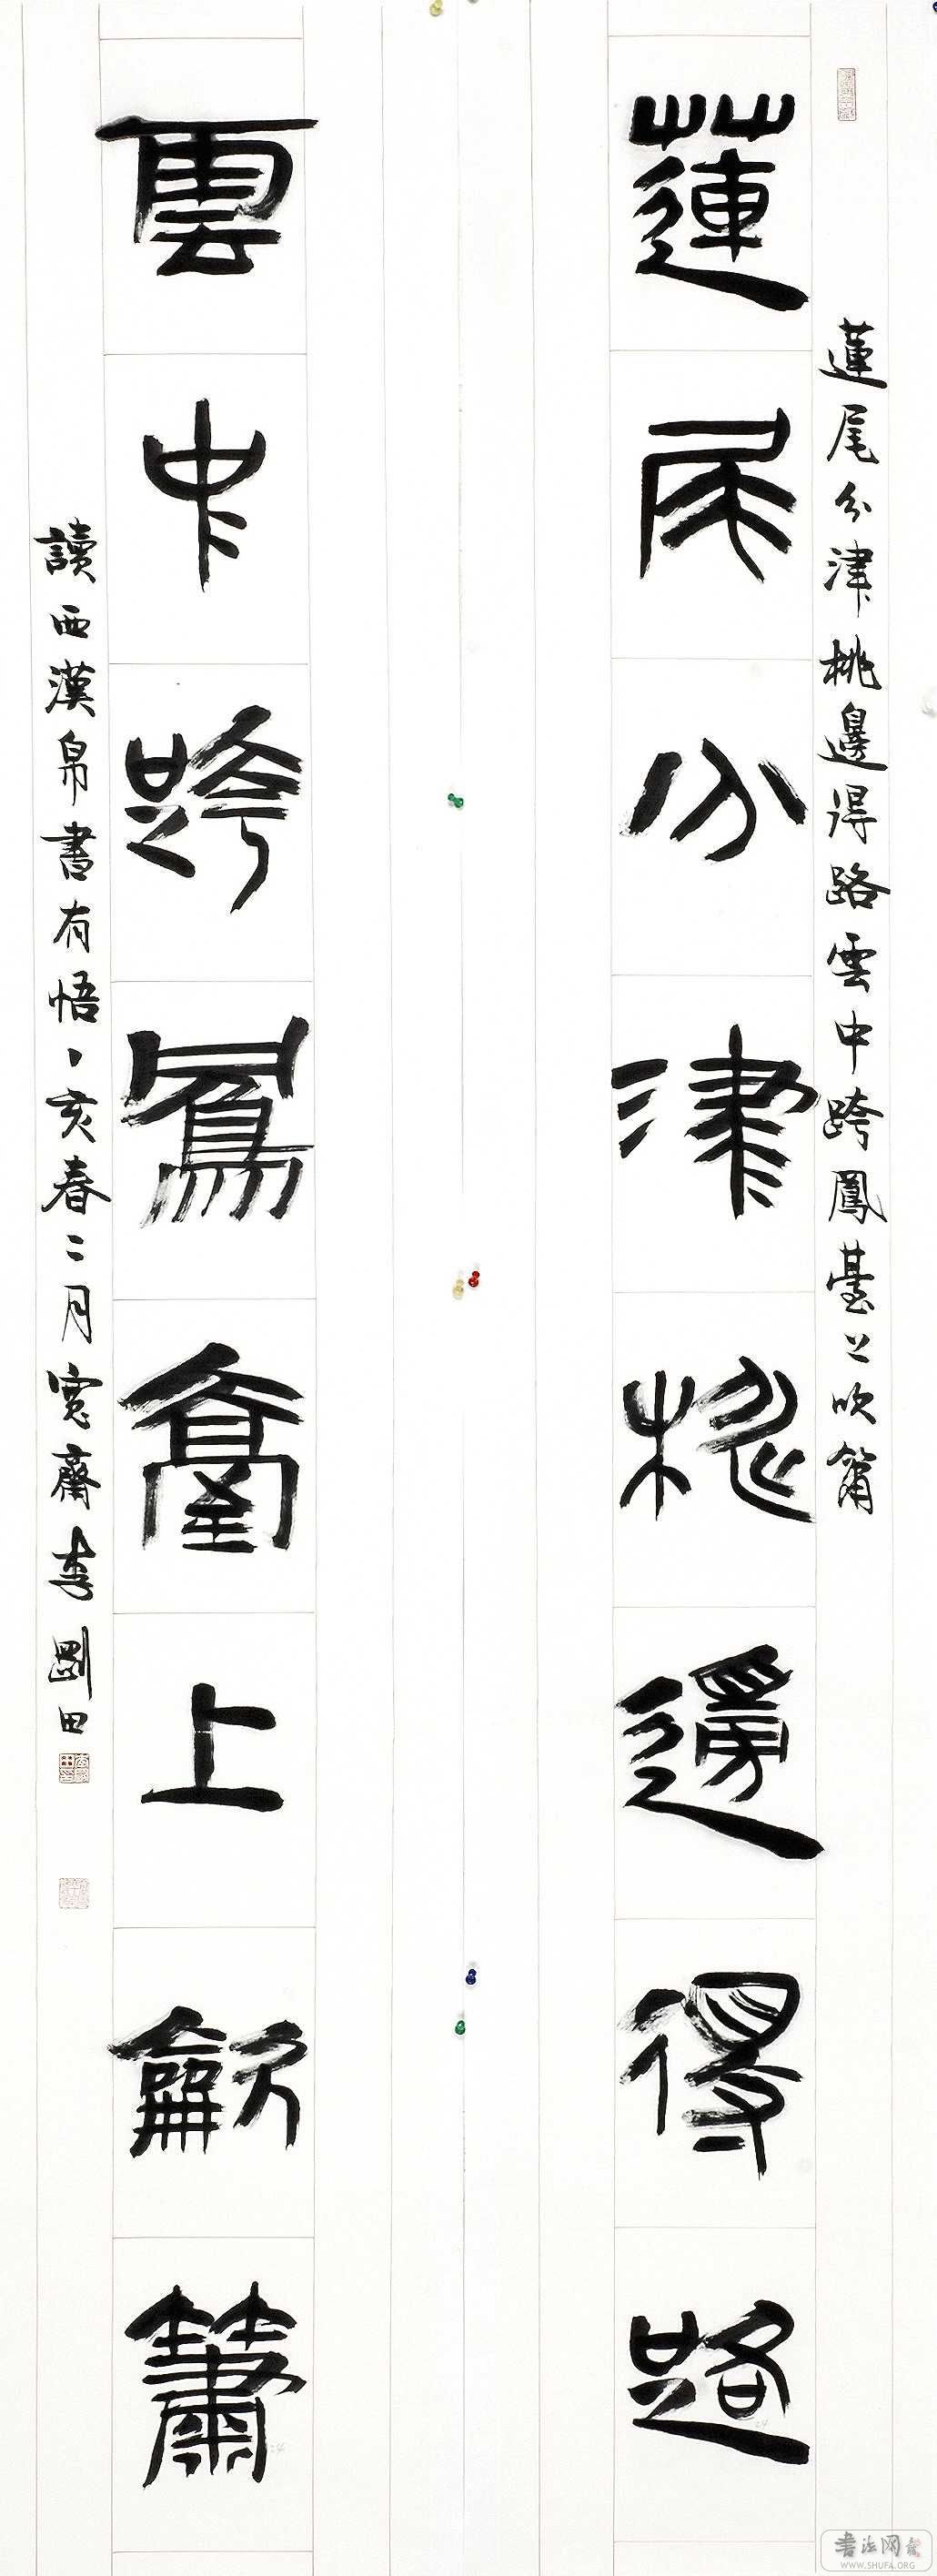 蓮尾分津桃邊得路雲中跨鳳臺上吹簫
蓮尾分津桃邊得路
雲中跨鳳臺上龡簫
讀西漢帛書有悟丶亥春二月寬齋李剛田
書法网
WWW.SHUFA.ORG